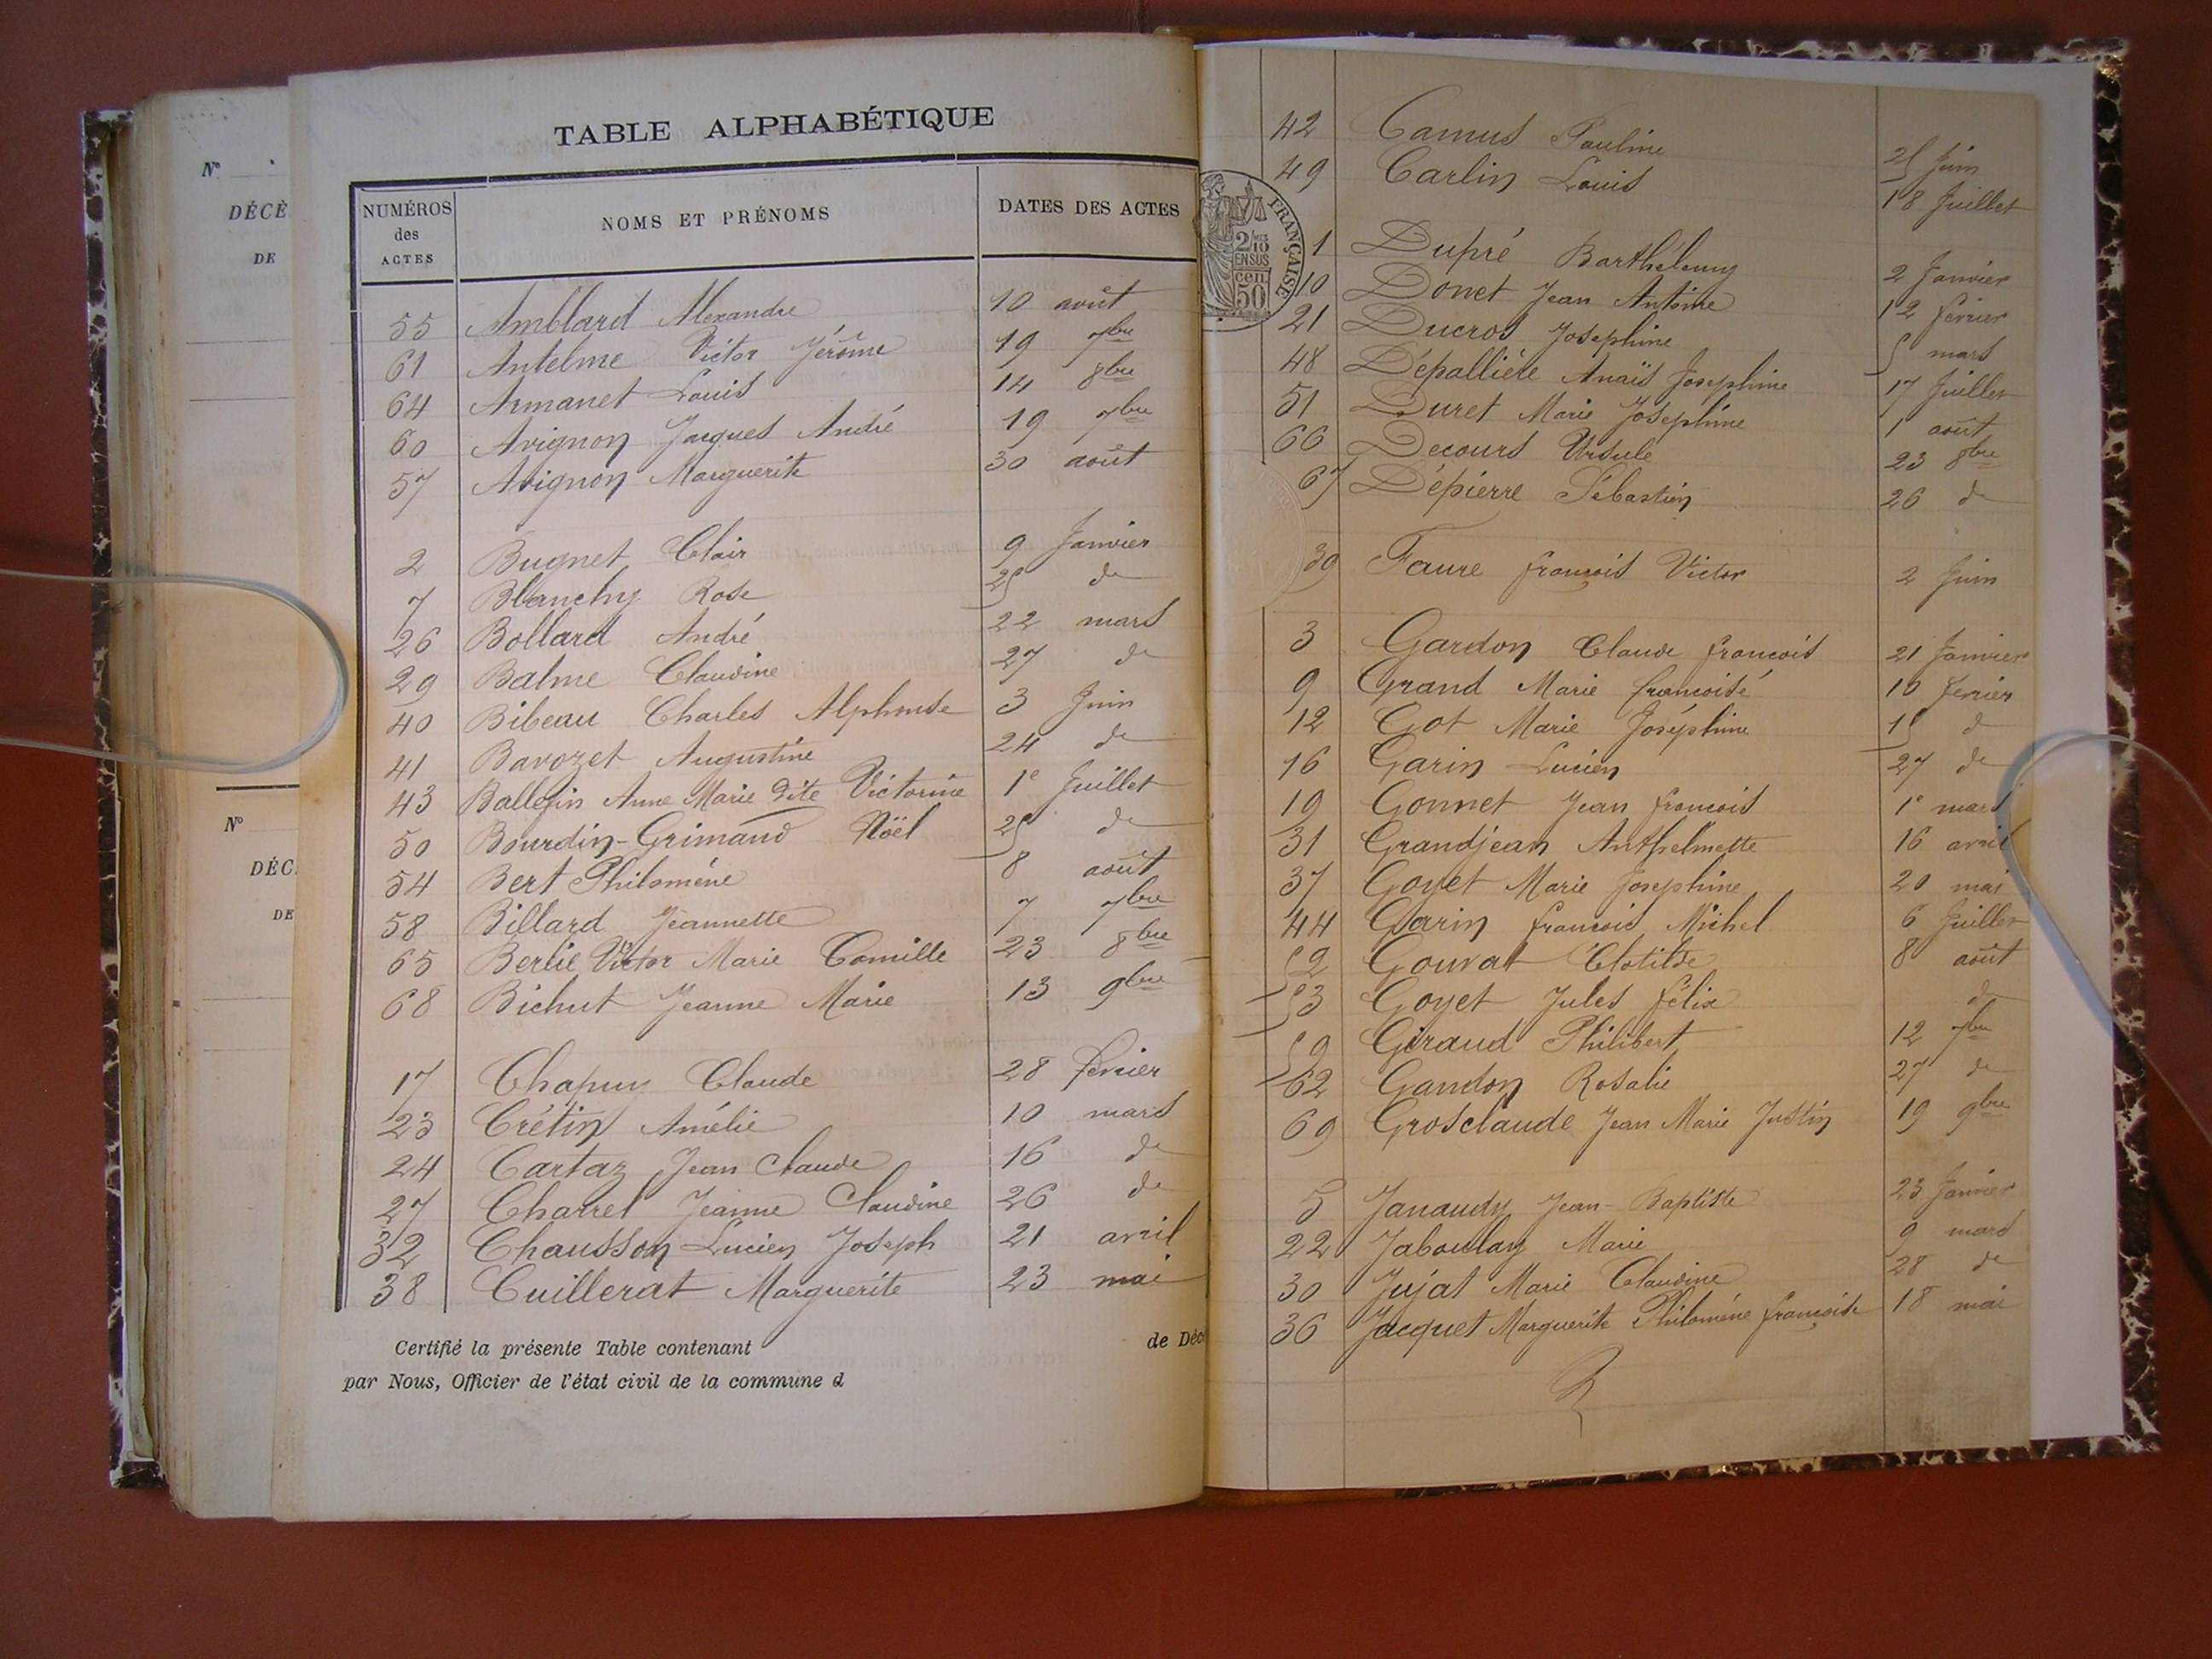 N°
DÉCÈ
DE
N°
DÉC
DE
TABLE ALPHABÉTIQUE
NUMÉROS des ACTES NOMS ET PRÉNOMS DATES DES ACTES
55 Amblard Alexandre 10 août
61 Antelme Victor Jérôme 19 7bre
64 Armanet Louis 14 8bre
60 Avignon Jacques André 19 7bre
57 Avignon Marguerite 30 août
2 Bugnet Clair 9 Janvier
7 Blanchy Rose 25 do
26 Bollard André 22 mars
29 Balme Claudine 27 do
40 Bibeau Charles Alphonse 3 Juin
41 Bavozet Augustine 24 do
43 Ballefin Anne Marie dite Victorine 1e Juillet
50 Bourdin-Grimaud Noël 25 do
54 Bert Philomène 8 août
58 Billard Jeannette 7 7bre
65 Berlie Victor Marie Camille 23 8bre
68 Bichut Jeanne Marie 13 9bre
17 Chapuy Claude 28 février
23 Crétin Amélie 10 mars
24 Cartaz Jean Claude 16 do
27 Charrel Jeanne Claudine 26 do
32 Chausson Lucien Joseph 21 avril
38 Cuillerat Marguerite 23 mai
Certifié la présente Table contenant de Déc
par Nous, Officier de l'état civil de la commune d
42 Camus Pauline 25 Juin
49 Carlin Louis 18 Juillet
FRANÇAISE
2/10
EN SUS
cen.
50
1 Dupré Barthélemy 2 Janvier
10 Donet Jean Antoine 12 février
21 Ducros Joséphine 5 mars
48 Dépallière Anaïs Joséphine 17 Juillet
51 Duret Marie Joséphine 1 août
66 Decours Ursule 23 8bre
67 Dépierre Sébastien 26 do
39 Faure françois Victor 2 Juin
3 Gardon Claude françois 21 Janvier
9 Grand Marie françoise 10 février
12 Got Marie Joséphine 15 do
16 Garin Lucien 27 do
19 Gonnet Jean françois 1e mars
31 Grandjean Anthelmette 16 avril
37 Goyet Marie Joséphine 20 mai
44 Garin françois Michel 6 Juillet
52 Gouvat Clotilde 8 août
53 Goyet Jules félix do
59 Giraud Philibert 12 7bre
62 Gandon Rosalie 27 do
69 Grosclaude Jean Marie Justin 19 9bre
5 Janaudy Jean-Baptiste 23 Janvier
22 Jaboulay Marie 9 mars
30 Jujat Marie Claudine 28 do
36 Jacquet Marguerite Philomène françoise 18 mai